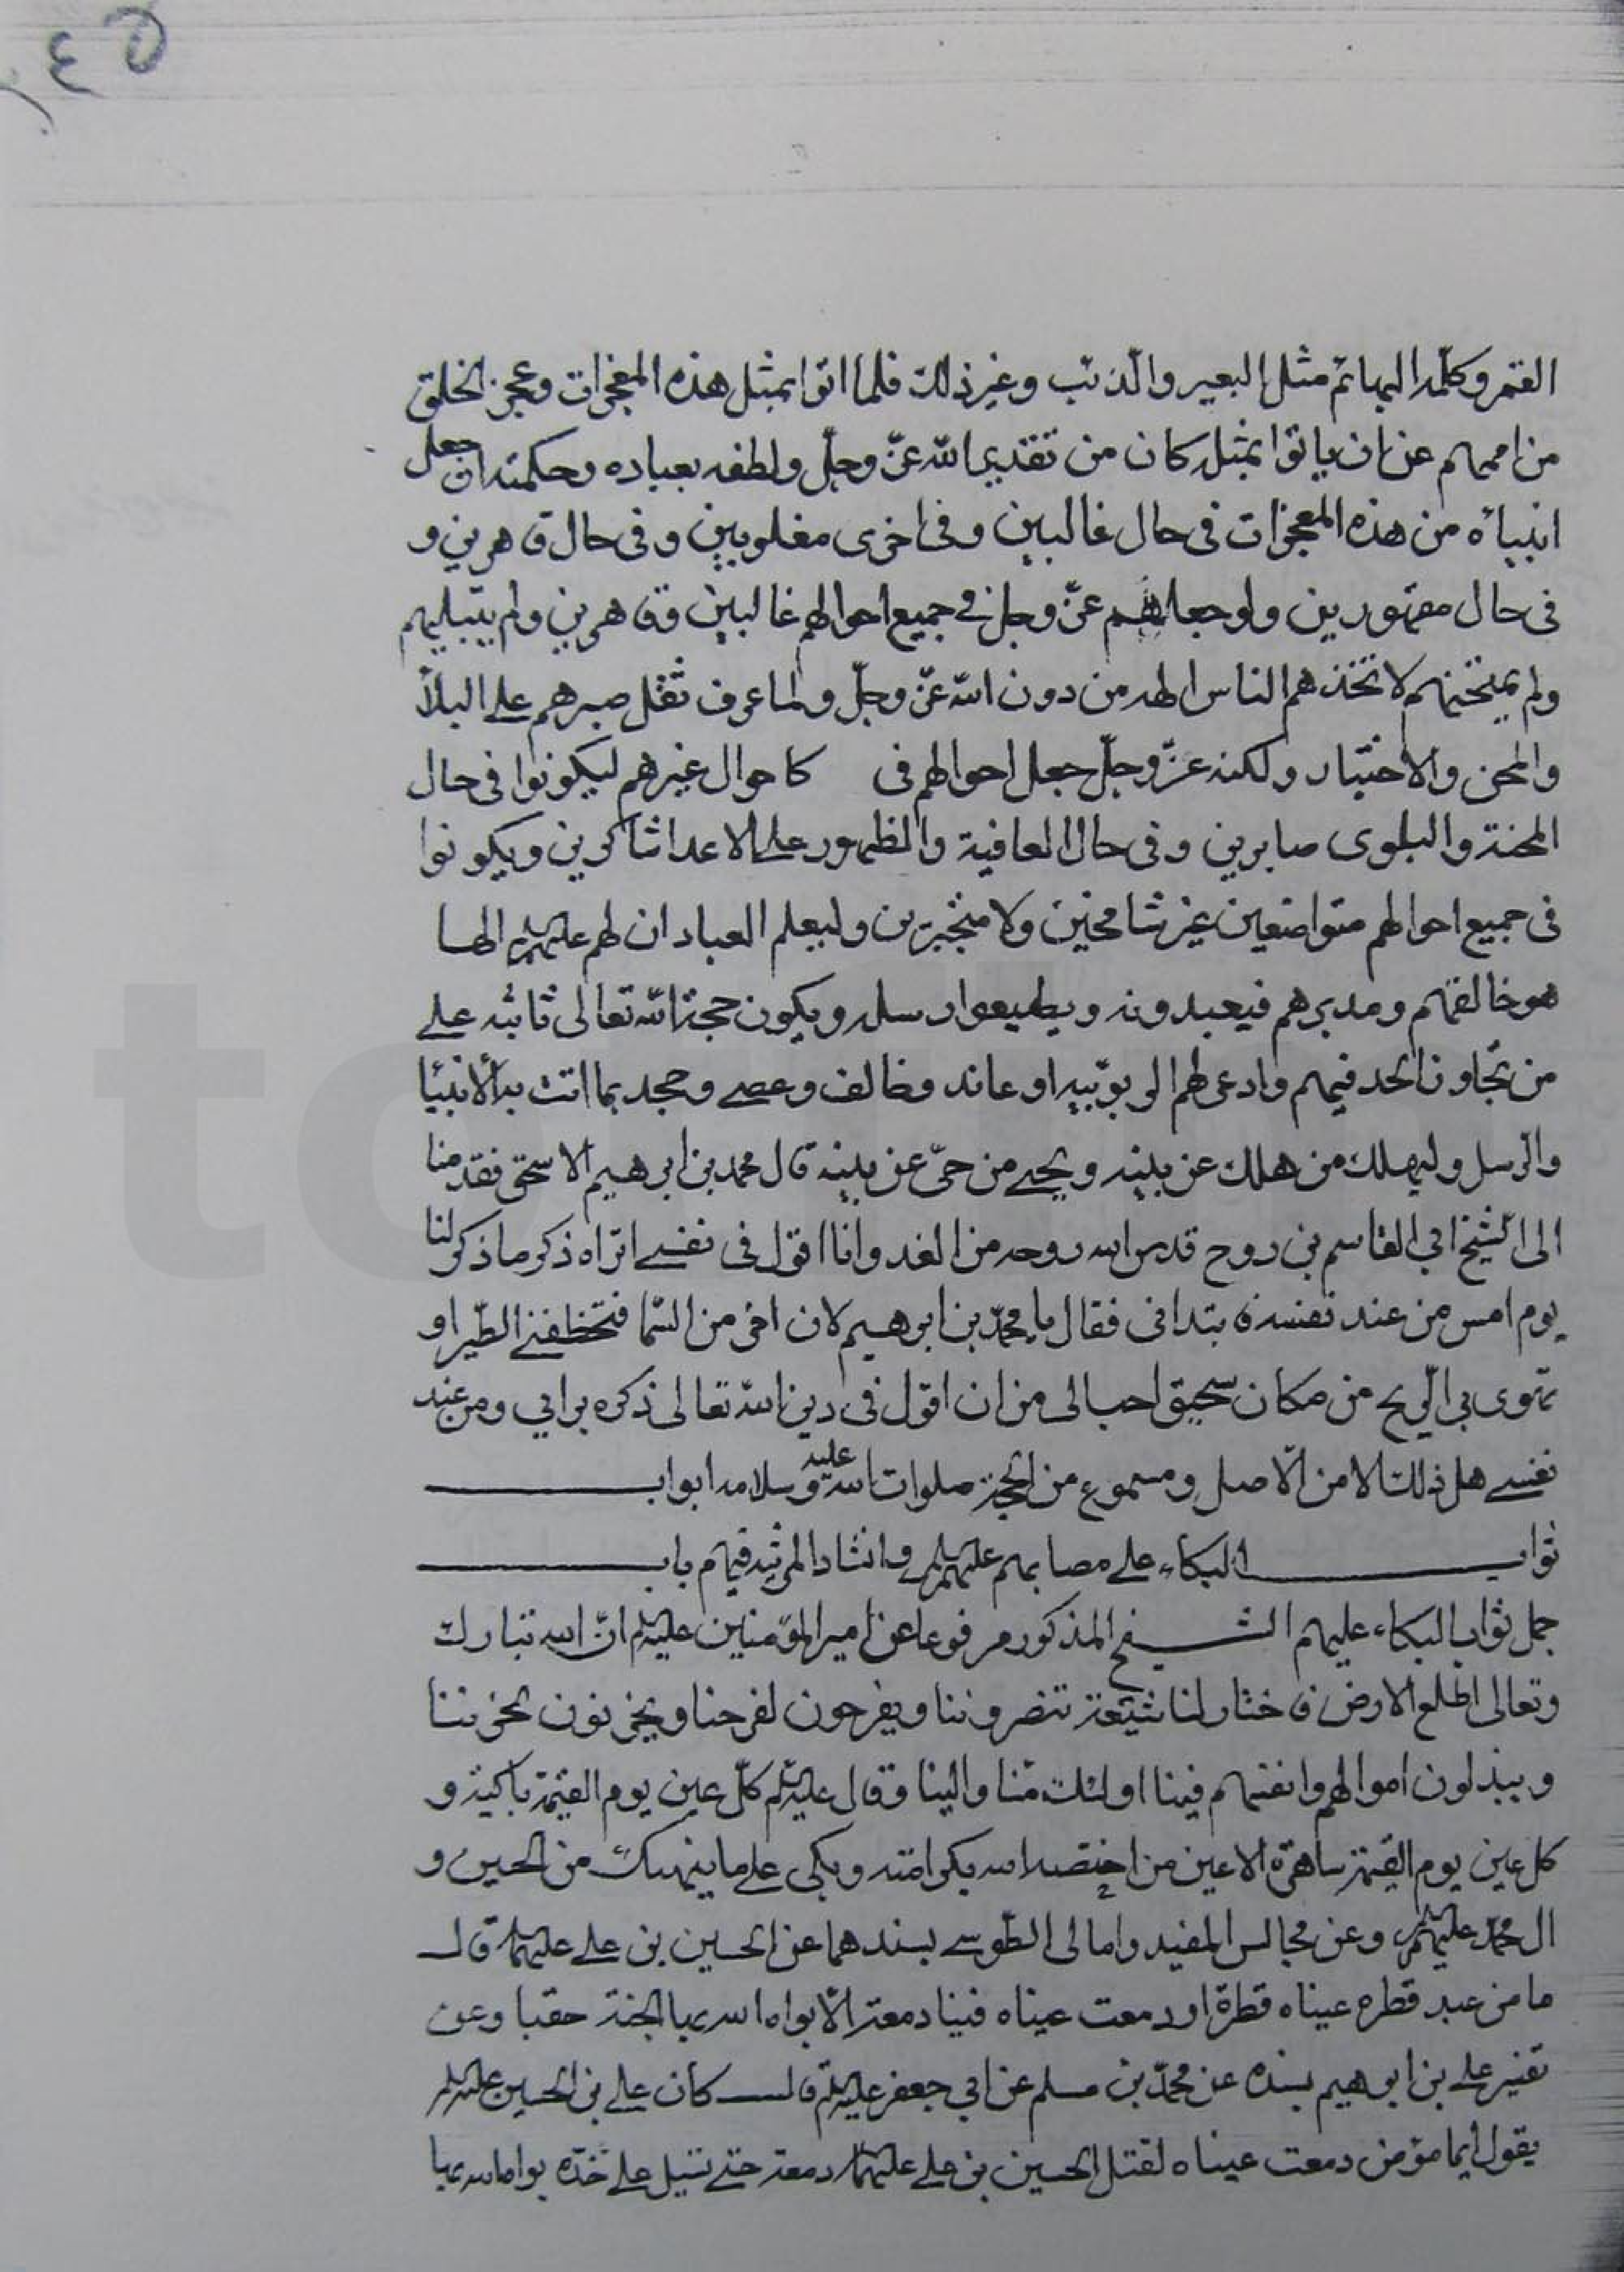 ٥٤
القمر وكلمه البهائم مثل البعير والذئب وغير ذلك فلما اتوا بمثل هذه المعجزات وعجز الخلق
من اممهم عن ان ياتوا بمثله كان من تقدير الله عزّ وجلّ ولطفه بعباده وحكمته ان جعل
انبياءه من هذه المعجزات فى حال غالبين وفى اخرى مغلوبين وفى حال قاهرين و
فى حال مقهورين ولو جعلهم عزّ وجل فى جميع احوالهم غالبين وقاهرين ولم يبتليهم
ولم يمتحنهم لاتخذهم الناس الهه من دون الله عزّ وجلّ ولما عرف ثقل صبرهم على البلاء
والمحن والاختبار ولكنه عزّ وجلّ جعل احوالهم فى كاحوال غيرهم ليكونوا فى حال
المحنة والبلوى صابرين وفى حال العافية والظهور على الاعدا شاكرين ويكونوا
فى جميع احوالهم متواضعين غير شامخين ولا متجبرين وليعلم العباد ان لهم عليهم السلم الها
هو خالقهم ومدبرهم فيعبدونه ويطيعوا رسله ويكون حجة الله تعالى ثابته على
من تجاوز الحد فيهم وادعى لهم الربوبيه او عاند وخالف وعصى وجحد بما اتت به الانبيا
والرسل وليهلك من هلك عن بينه ويحيى من حىّ عن بينه قال محمد بن ابرهيم الاسحق فقدمنا
الى الشيخ ابي القاسم بن روح قدس الله روحه من الغد وانا اقول فى نفسى اتراه ذكر ما ذكر لنا
يوم امس من عند نفسه فابتدانى فقال يا محمّد بن ابرهيم لان اخر من السّما فتخطفنى الطّير او
تهوى بي الرّيح من مكان سحيق احب الى من ان اقول فى دين الله تعالى ذكره برايى ومن عند
نفسى هل ذلك الا من الاصل ومسموع من الحجة صلوات الله عليه وسلامه ابواب
ثواب البكاء على مصابهم عليهم السلم وانشاد المرثيه فيهم باب
جمل ثواب البكاء عليهم الشيخ المذكور مرفوعا عن امير المؤمنين عليه السلم انّ الله تبارك
وتعالى اطلع الارض فاختار لنا شيعة تنصروننا ويفرحون لفرحنا ويحزنون لحزننا
ويبذلون اموالهم وانفسهم فينا اولئك منّا والينا وقال عليه السلم كلّ عين يوم القيمة باكية و
كل عين يوم القيمة ساهرة الا عين من اختصه الله بكرامته وبكى على ما ينتهك من الحسين و
ال محمّد عليهم السلم وعن مجالس المفيد وامالى الطّوسى بسندهما عن الحسين بن على عليهما السلم قال
ما من عبد قطره عيناه قطرة او دمعت عيناه فينا دمعة الا بواه الله بها الجنة حقبا وعن
تفسير على بن ابرهيم بسنده عن محمّد بن مسلم عن ابي جعفر عليه السلم قال كان على بن الحسين عليه السلم
يقول ايما مؤمن دمعت عيناه لقتل الحسين بن على عليهما السلم دمعة حتى تسيل على خدّه بواه الله بها